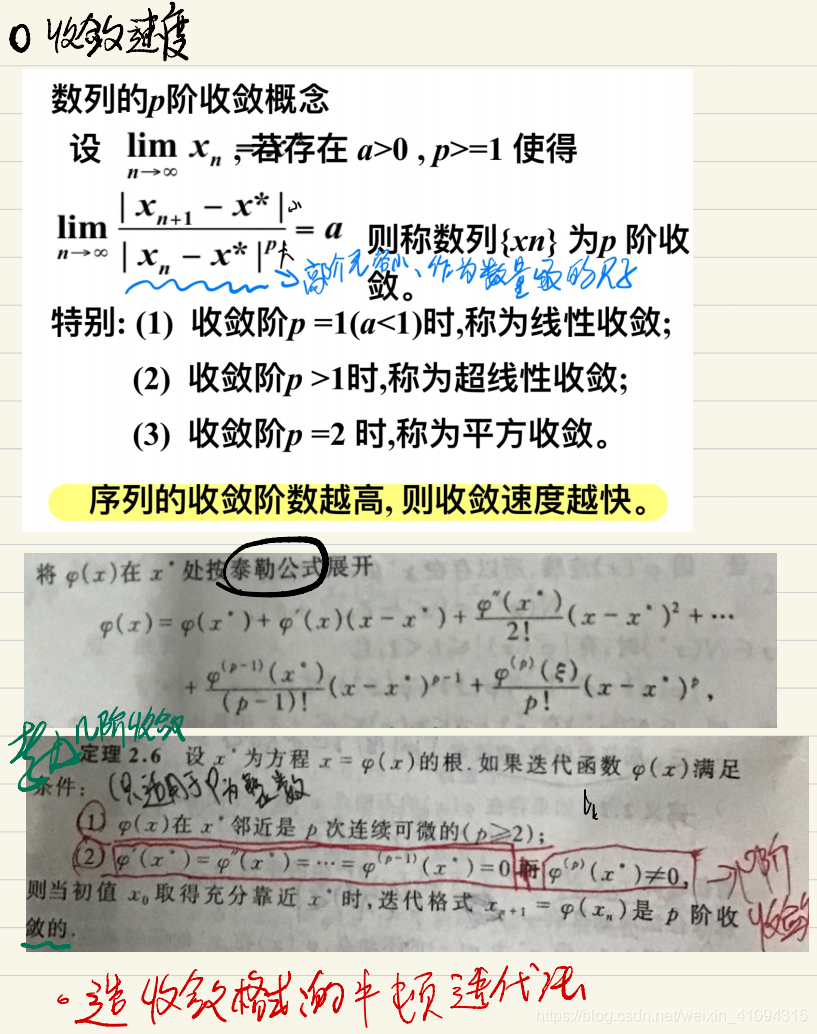 收敛速度
数列的p阶收敛概念
设 lim n→∞ xn = x* ,若存在 a>0 , p>=1 使得
lim n→∞ | xn+1 − x* | / | xn − x* |^p = a 则称数列{xn} 为p 阶收
敛。
特别: (1) 收敛阶p =1(a<1)时,称为线性收敛;
(2) 收敛阶p >1时,称为超线性收敛;
(3) 收敛阶p =2 时,称为平方收敛。
序列的收敛阶数越高, 则收敛速度越快。
将 φ(x)在 x* 处按泰勒公式展开
φ(x) = φ(x*) + φ′(x)(x − x*) + φ″(x*)/2! (x − x*)² + ⋯
+ φ^(p−1)(x*)/(p−1)! (x − x*)^(p−1) + φ^(p)(ξ)/p! (x − x*)^p ,
几阶收敛
定理 2.6 设 x* 为方程 x = φ(x)的根. 如果迭代函数 φ(x)满足
条件: (只适用于P为整数
① φ(x)在 x* 邻近是 p 次连续可微的(p⩾2);
② φ′(x*) = φ″(x*) = ⋯ = φ^(p−1)(x*) = 0 而 φ^(p)(x*) ≠ 0, → P阶
则当初值 x0 取得充分靠近 x* 时, 迭代格式 xn+1 = φ(xn)是 p 阶收 收敛
敛的.
造收敛格式的牛顿迭代法
https://blog.csdn.net/weixin_41094315